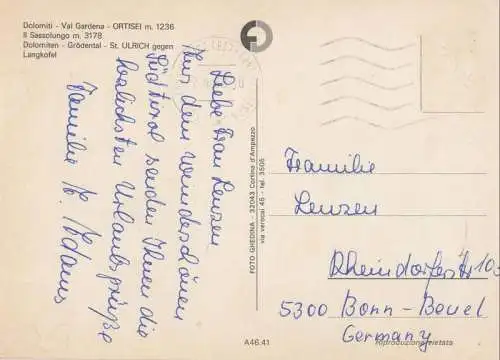 Dolomiti - Val Gardena - ORTISEI m. 1236
Il Sassolungo m. 3178
Dolomiten - Grödental - St. ULRICH gegen
Langkofel
Liebe Frau Lenzen
Aus dem wunderschönen
Südtirol senden Ihnen die
herzlichsten Urlaubsgrüße
Familie H. Adams
FOTO GHEDINA - 32043 Cortina d'Ampezzo
via verocai 45 - tel. 3505
Framilie
Lenzen
Rheindorferstr 103
5300 Bonn-Beuel
Germany
A46.41
Riproduzione vietata